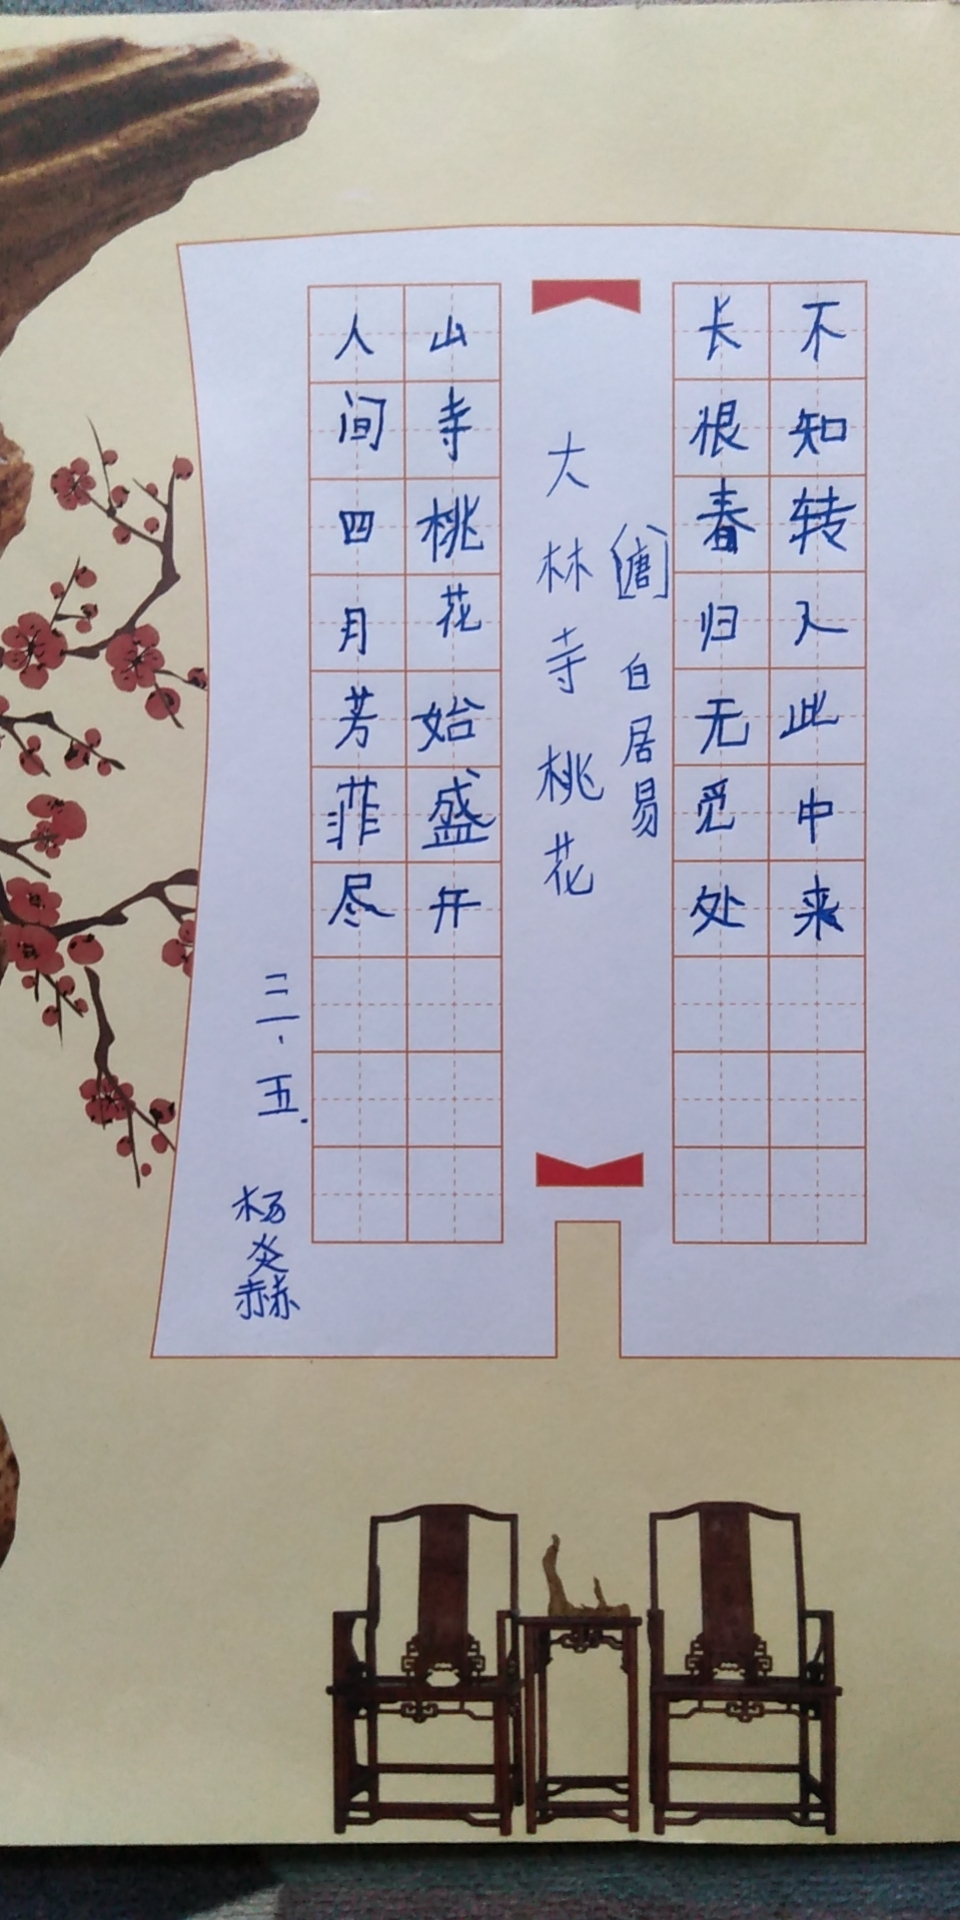 大林寺桃花
[唐] 白居易
人间四月芳菲尽
山寺桃花始盛开
长恨春归无觅处
不知转入此中来
三、五.
杨炎赫